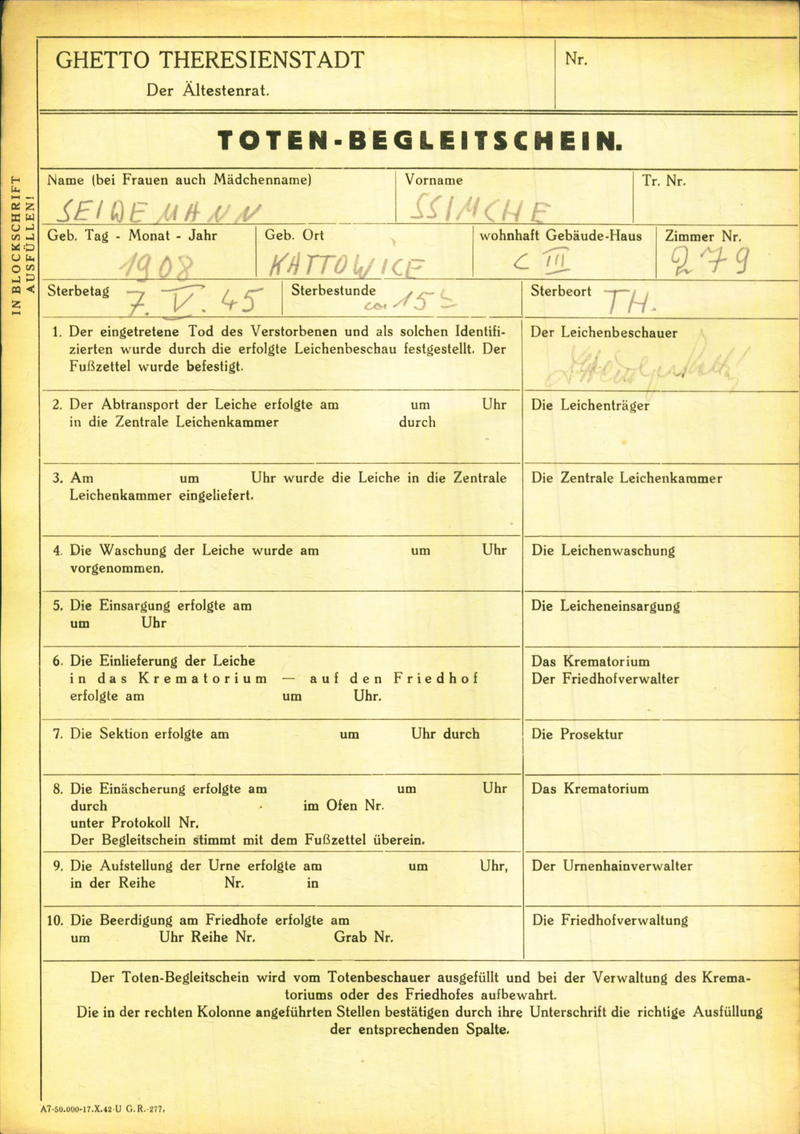 GHETTO THERESIENSTADT
Der Ältestenrat.
Nr.
TOTEN-BEGLEITSCHEIN.
IN BLOCKSCHRIFT
AUSFÜLLEN!
Name (bei Frauen auch Mädchenname)
SEIDEMANN
Vorname
SSIMCHE
Tr. Nr.
Geb. Tag - Monat - Jahr
1908
Geb. Ort
KATTOWICE
wohnhaft Gebäude-Haus
C III
Zimmer Nr.
279
Sterbetag
7. V. 45
Sterbestunde
15
Sterbeort
TH.
1. Der eingetretene Tod des Verstorbenen und als solchen Identifi-
zierten wurde durch die erfolgte Leichenbeschau festgestellt. Der
Fußzettel wurde befestigt.
Der Leichenbeschauer
2. Der Abtransport der Leiche erfolgte am um Uhr
in die Zentrale Leichenkammer durch
Die Leichenträger
3. Am um Uhr wurde die Leiche in die Zentrale
Leichenkammer eingeliefert.
Die Zentrale Leichenkammer
4. Die Waschung der Leiche wurde am um Uhr
vorgenommen.
Die Leichenwaschung
5. Die Einsargung erfolgte am
um Uhr
Die Leicheneinsargung
6. Die Einlieferung der Leiche
in das Krematorium — auf den Friedhof
erfolgte am um Uhr.
Das Krematorium
Der Friedhofverwalter
7. Die Sektion erfolgte am um Uhr durch
Die Prosektur
8. Die Einäscherung erfolgte am um Uhr
durch im Ofen Nr.
unter Protokoll Nr.
Der Begleitschein stimmt mit dem Fußzettel überein.
Das Krematorium
9. Die Aufstellung der Urne erfolgte am um Uhr,
in der Reihe Nr. in
Der Urnenhainverwalter
10. Die Beerdigung am Friedhofe erfolgte am
um Uhr Reihe Nr. Grab Nr.
Die Friedhofverwaltung
Der Toten-Begleitschein wird vom Totenbeschauer ausgefüllt und bei der Verwaltung des Krema-
toriums oder des Friedhofes aufbewahrt.
Die in der rechten Kolonne angeführten Stellen bestätigen durch ihre Unterschrift die richtige Ausfüllung
der entsprechenden Spalte.
A7-50.000-17.X.42-U G.R.-277.